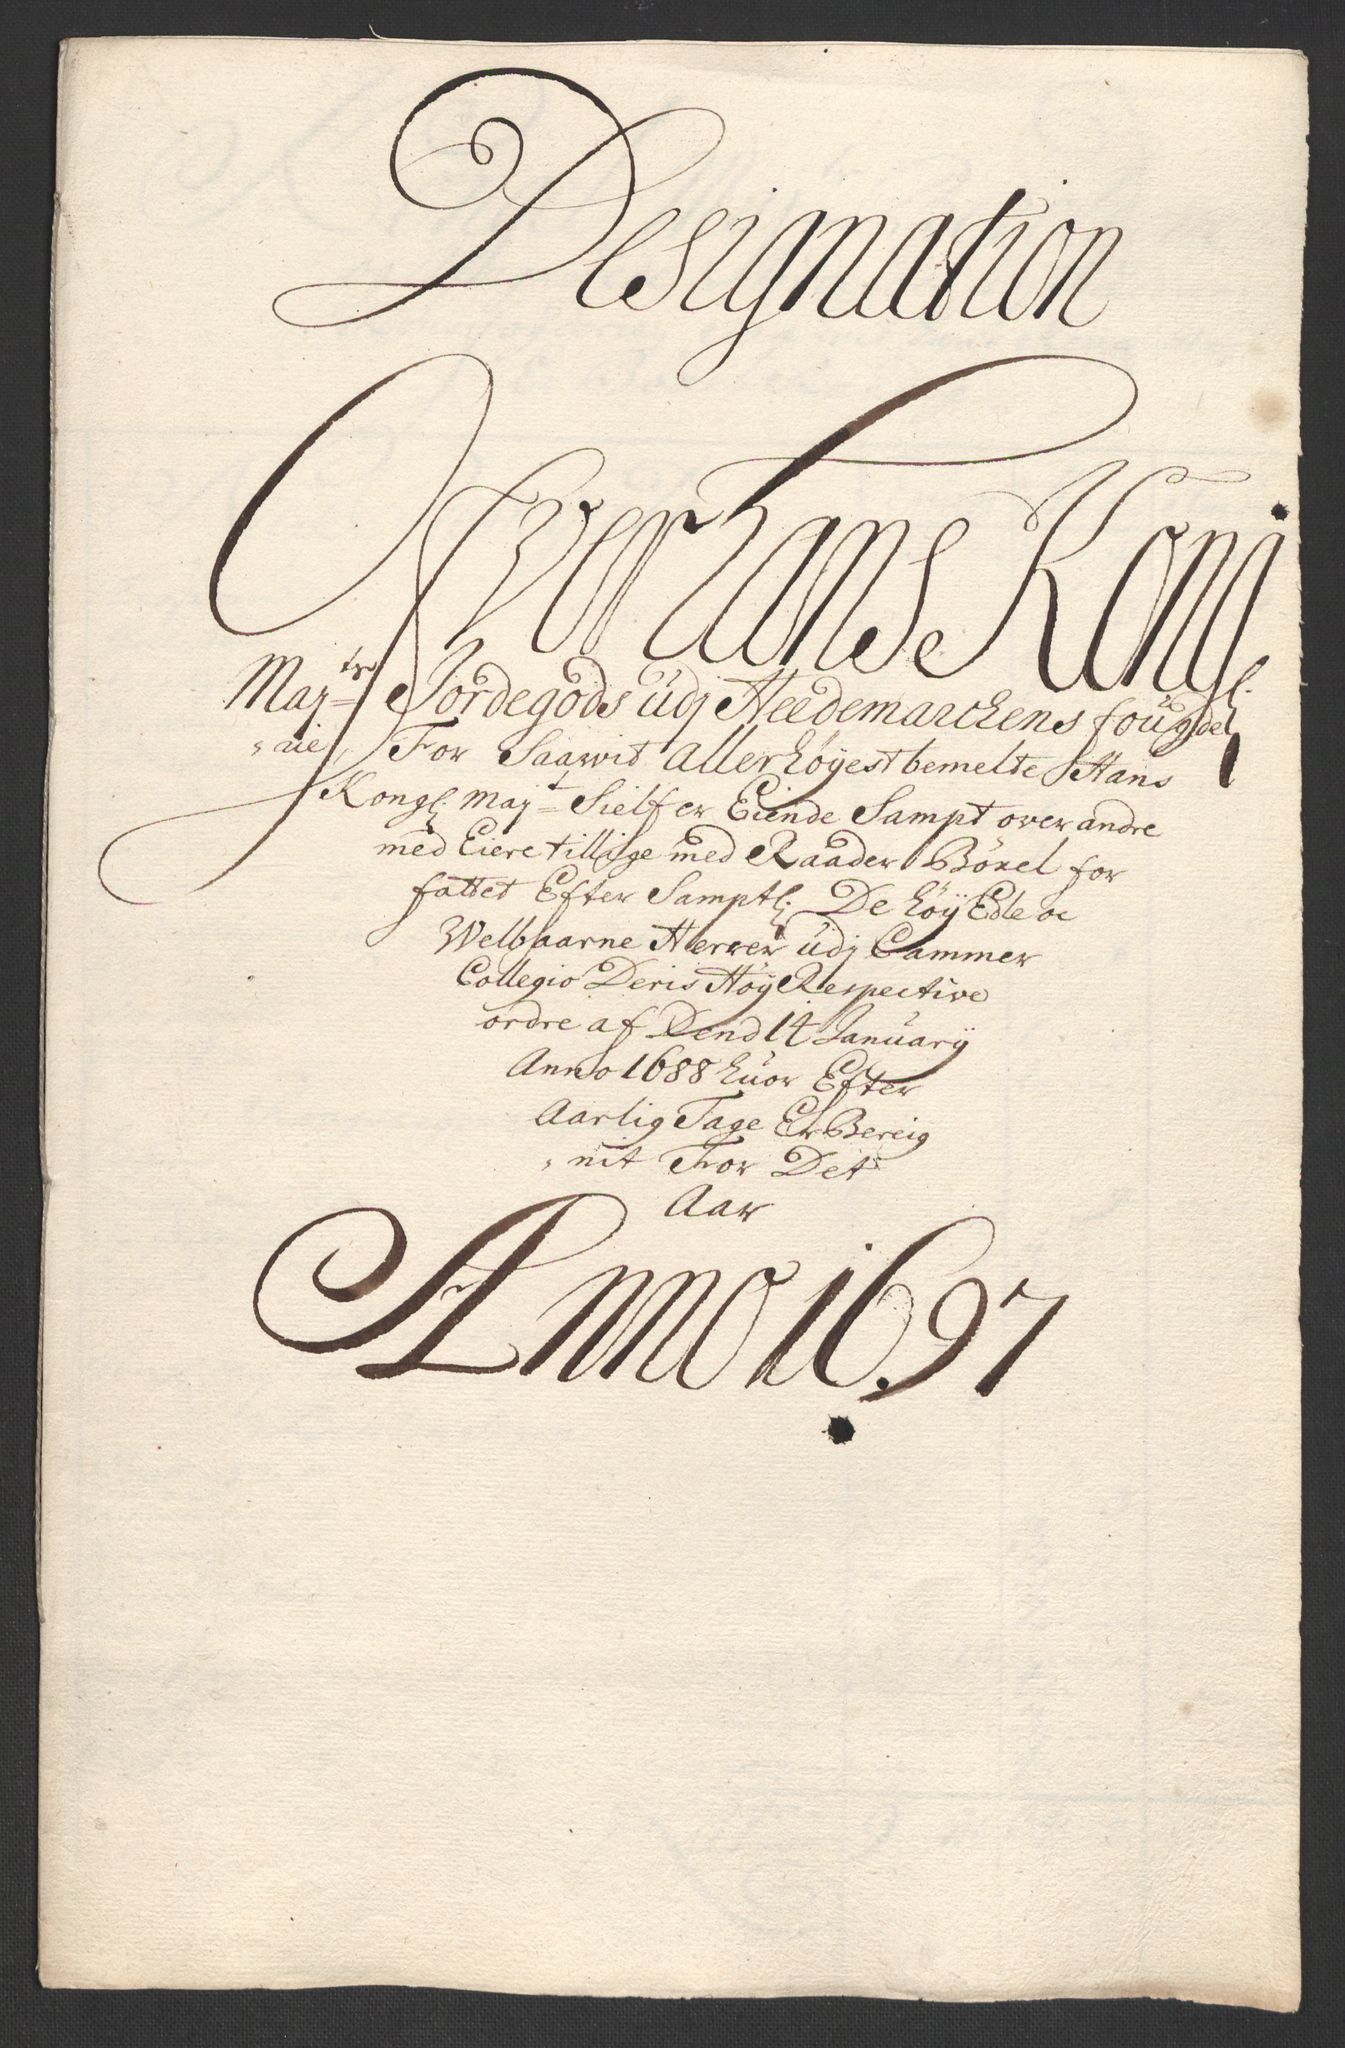 Designation
Ofver Hans Kongl:
Maj:tz Jordegods udj Heedemarchens fougde
rie, For Saawit allerhöyestbemelte Hans
Kongl: Maj:t Sielf er Eiende Sampt over andre
med Eiere tillige med Raader Böxel for
fattet Efter Samptl: De höy Edle oc
Welbaarne Herrer udj Cammer
Collegio Deris Höy Respective
ordre af Dend 14 January
Anno 1688 huor Efter
Aarlig Tage Er Bereig
nit For Det
Aar
Anno 1697